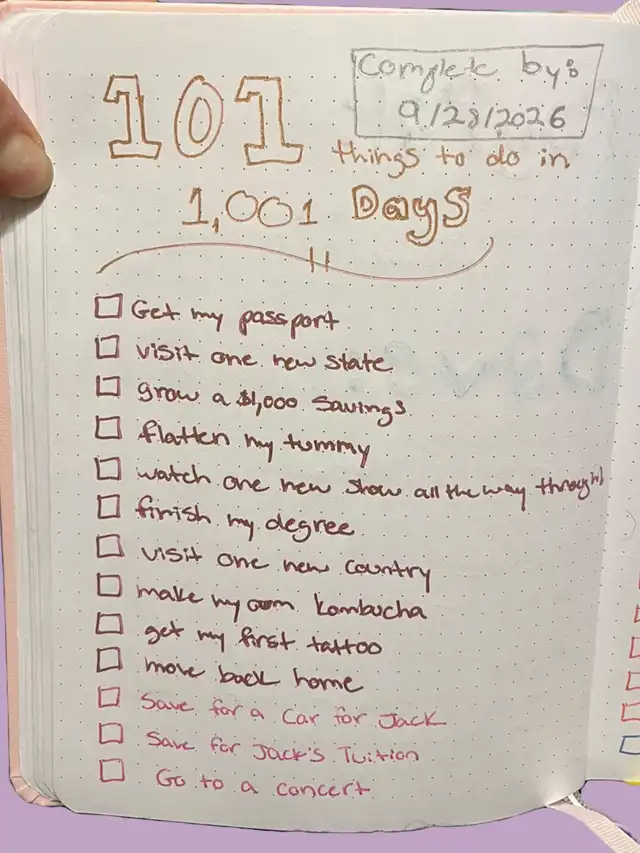 Complete by:
9/28/2026
101
things to do in
1,001 Days
Get my passport
visit one new state
grow a $1,000 savings
flatten my tummy
watch one new show all the way through
finish my degree
visit one new country
make my own kombucha
get my first tattoo
move back home
Save for a car for Jack
Save for Jack's Tuition
Go to a concert